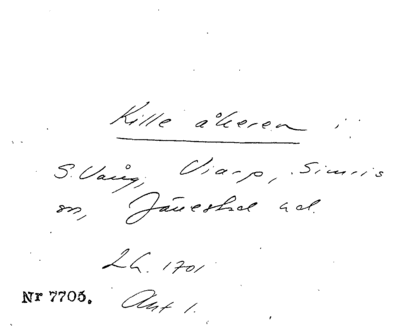 Kille åkeren i
S. Vång, Viarp, Simris
sn, Järrestad hd.
LA. 1701
Nr 7705. Akt 1.